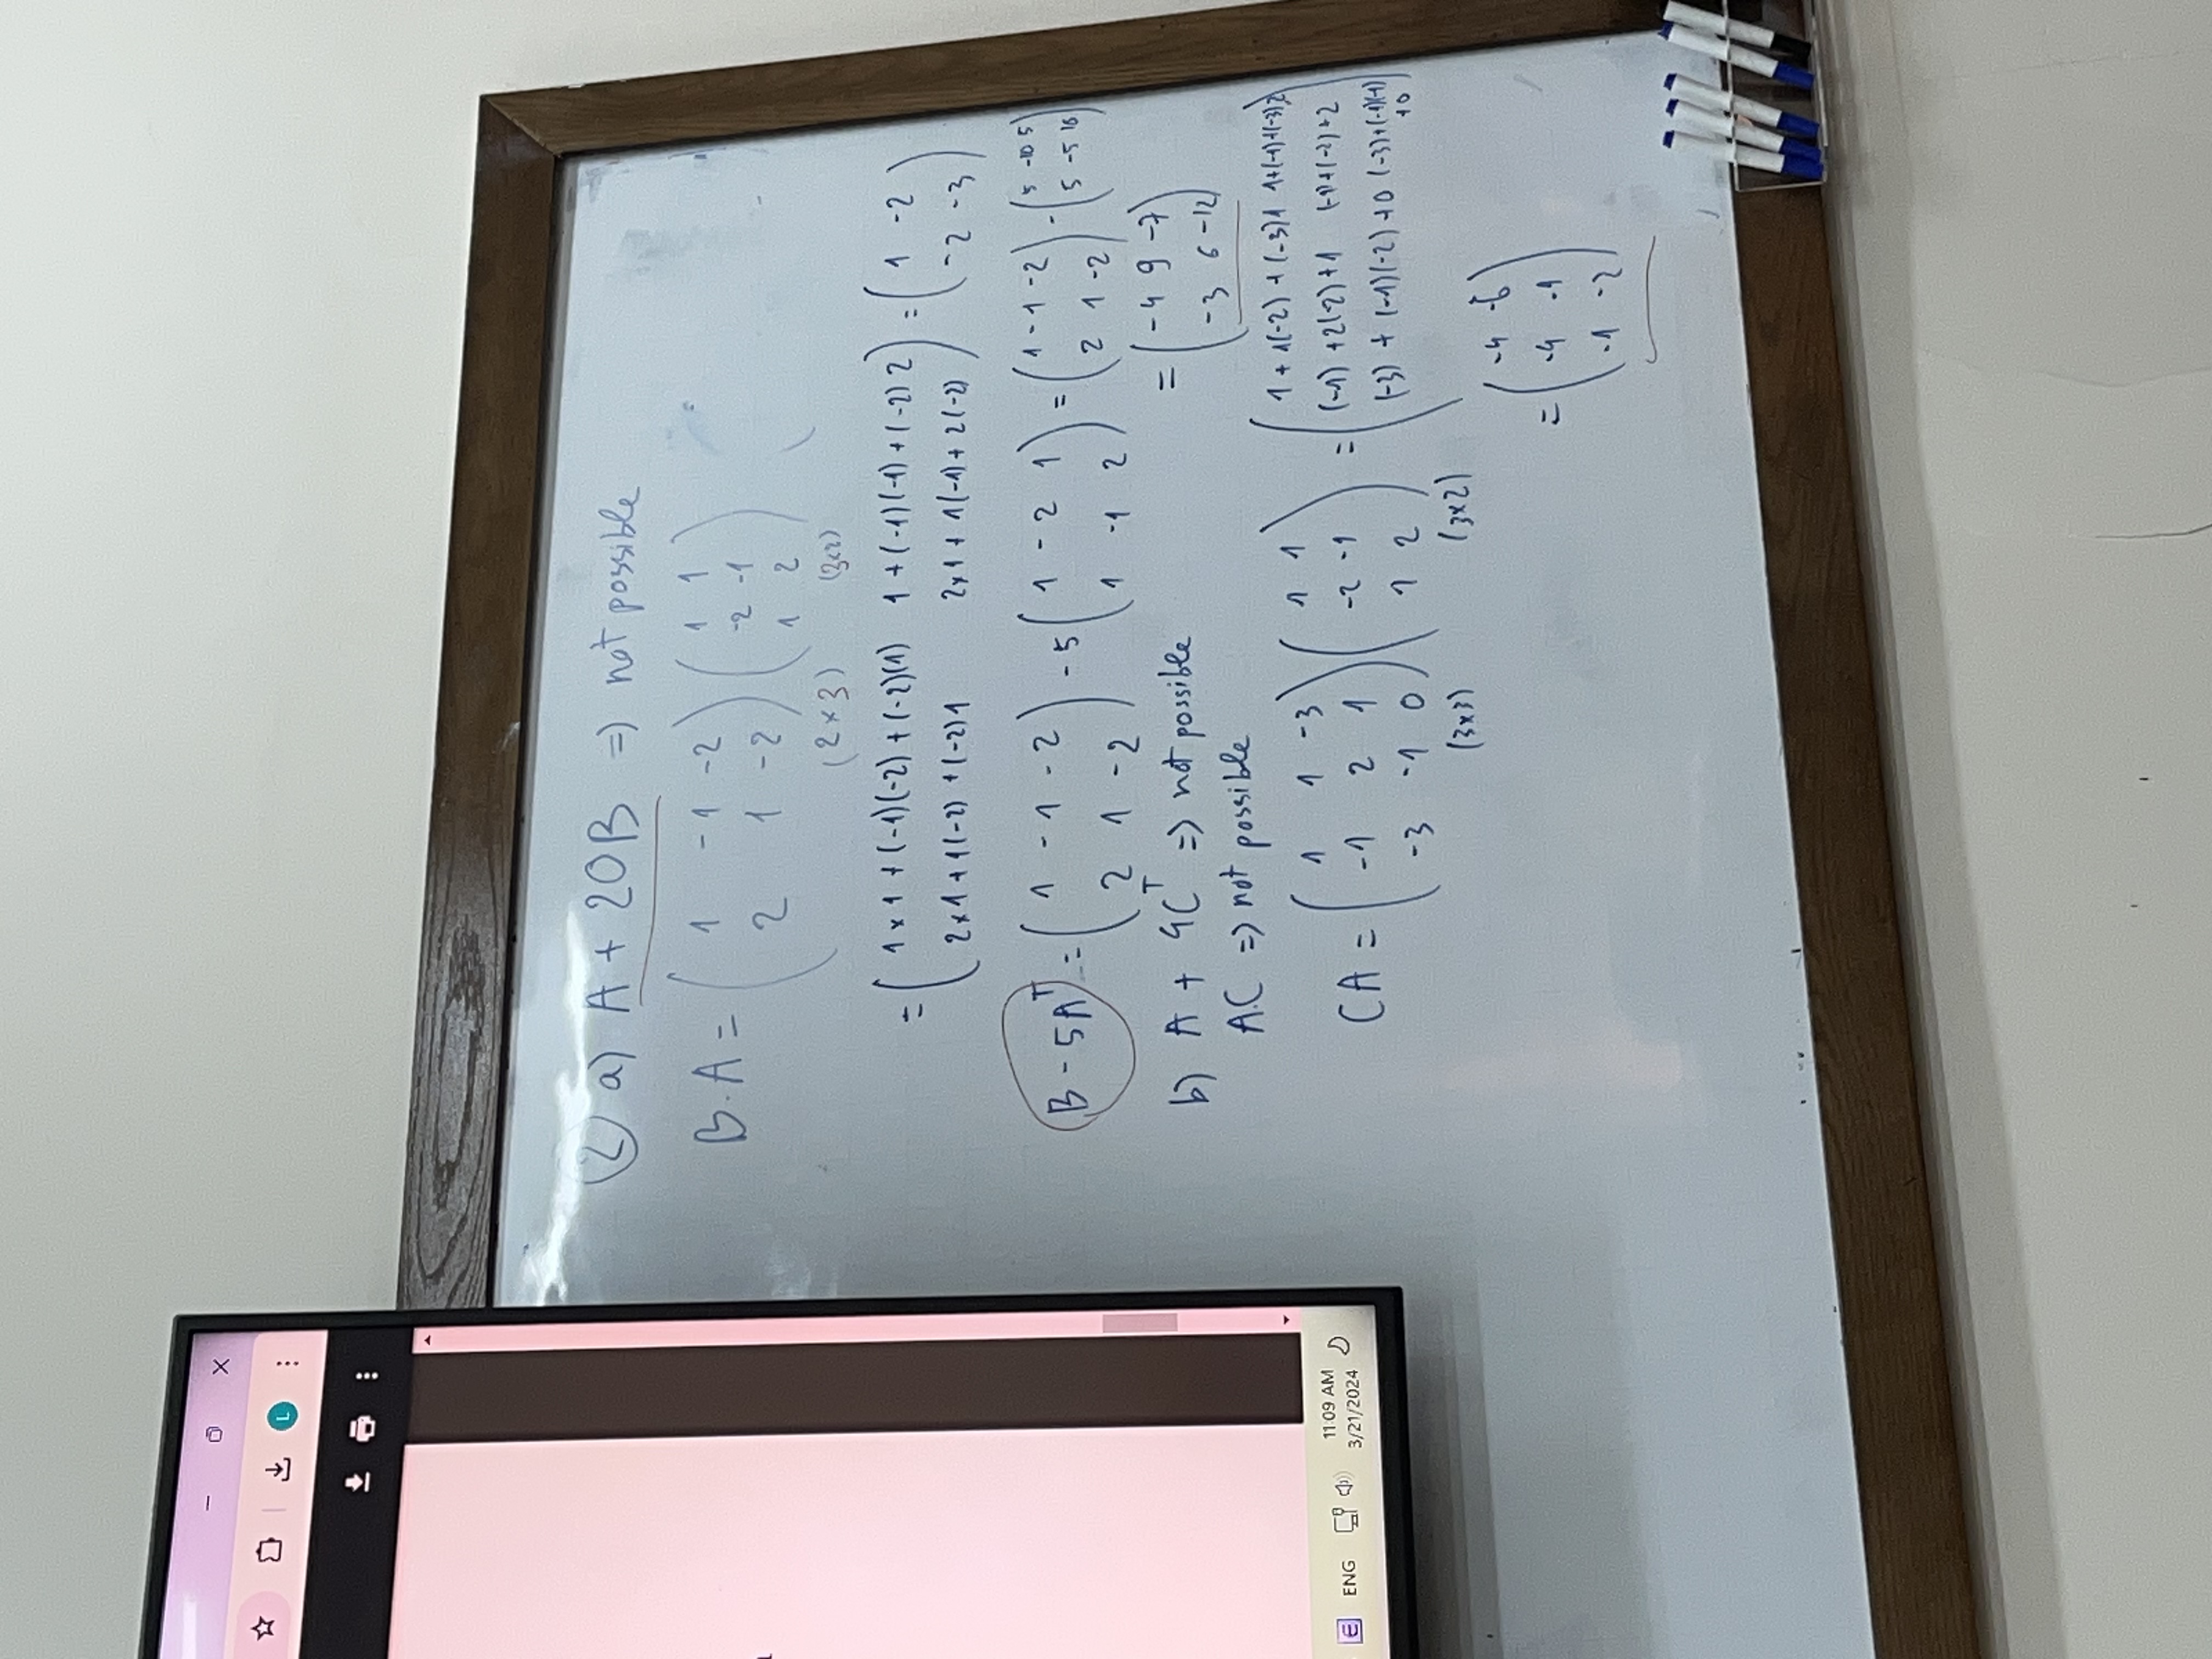 L
ENG
11:09 AM
3/21/2024
② a) A + 20B => not possible
B.A = ( 1 -1 -2 ) ( 1 1 )
2 1 -2 -2 -1
1 2
(2×3) (3×2)
= ( 1×1 + (-1)(-2) + (-2)(1) 1 + (-1)(-1) + (-2)2 ) = ( 1 -2 )
2×1 + 1(-2) + (-2)1 2×1 + 1(-1) + 2(-2) -2 -3
B - 5Aᵀ = ( 1 -1 -2 ) - 5 ( 1 -2 1 ) = ( 1 -1 -2 ) - ( 5 -10 5 )
2 1 -2 1 -1 2 2 1 -2 5 -5 10
= ( -4 9 -7 )
-3 6 -12
b) A + 4Cᵀ => not possible
A.C => not possible
CA = ( 1 1 -3 ) ( 1 1 ) = ( 1 + 1(-2) + (-3)1 1+(-1)+(-3)2 )
-1 2 1 -2 -1 (-1) + 2(-2) + 1 (-1)+(-2)+2
-3 -1 0 1 2 (-3) + (-1)(-2) + 0 (-3)+(-1)(-1)
+0
(3×3) (3×2)
= ( -4 -6 )
-4 -1
-1 -2